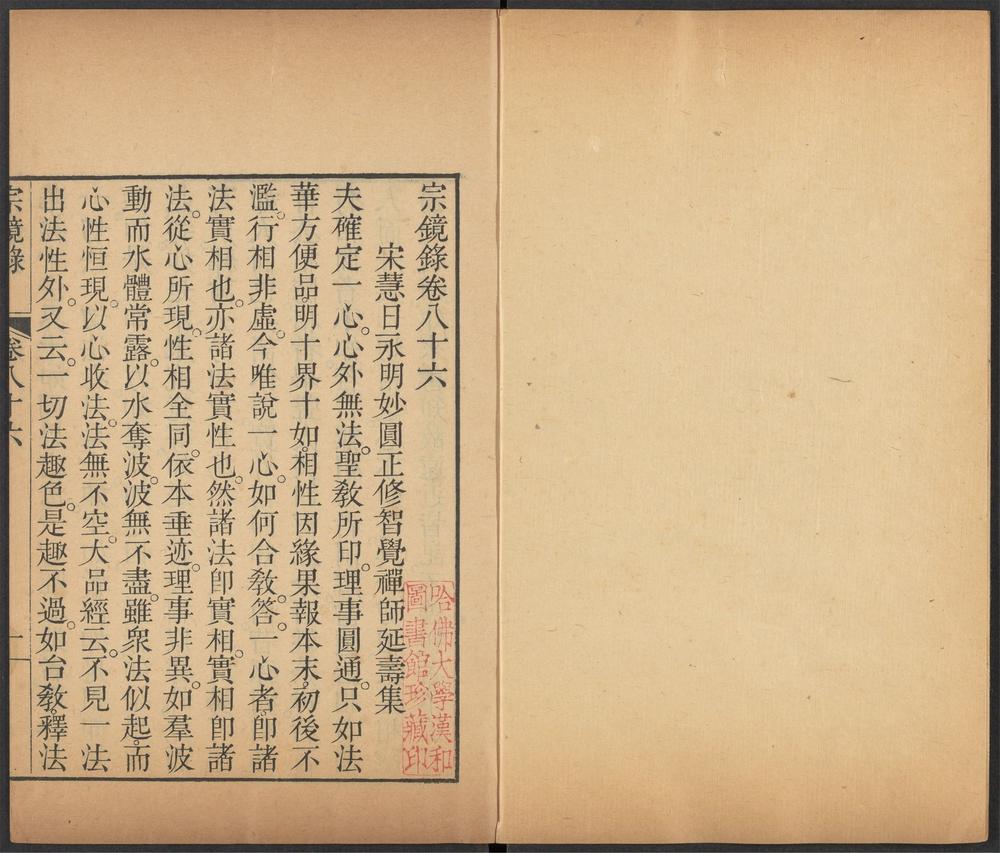 宗鏡錄卷八十六
宋慧日永明妙圓正修智覺禪師延壽集
夫確定一心。心外無法。聖教所印。理事圓通。只如法
華方便品。明十界十如。相性因緣果報本末。初後不
濫。行相非虛。今唯說一心。如何合教。答。一心者。卽諸
法實相也。亦諸法實性也。然諸法卽實相。實相卽諸
法。從心所現。性相全同。依本垂迹。理事非異。如羣波
動而水體常露。以水奪波。波無不盡。雖衆法似起。而
心性恒現。以心收法。法無不空。大品經云。不見一法
出法性外。又云。一切法趣色。是趣不過。如台教。釋法
宗鏡錄 卷八十六 一
哈佛大學漢和
圖書館珍藏印